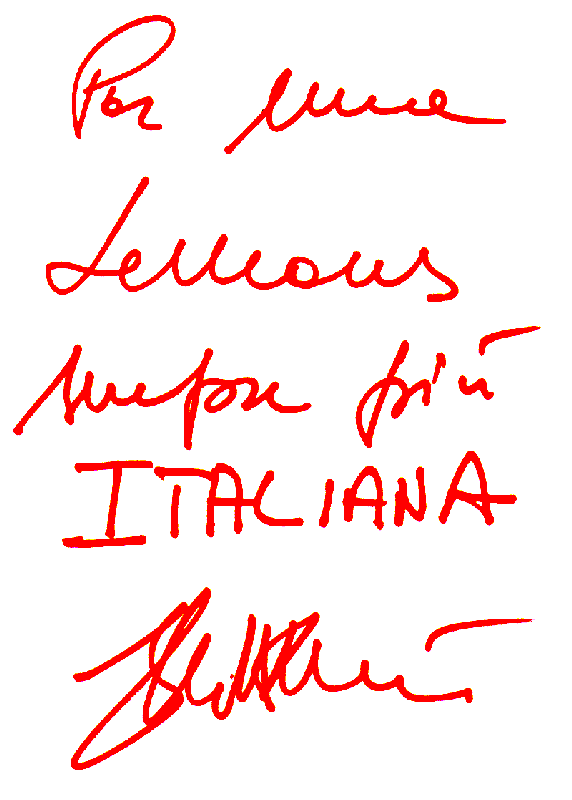 Per una
Le Mans
sempre più
ITALIANA